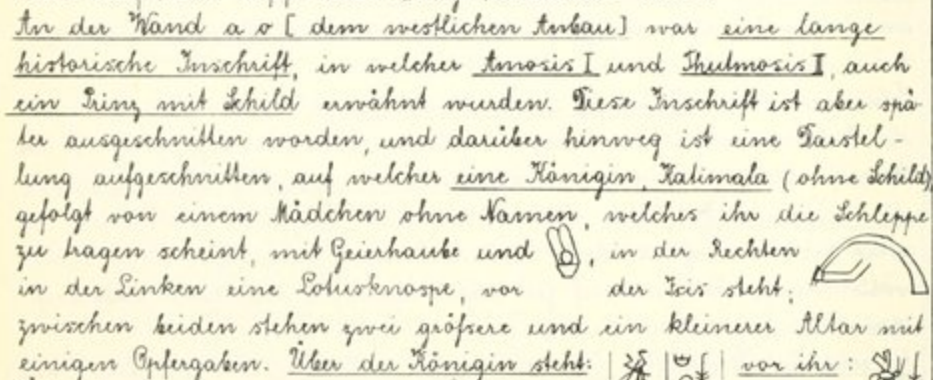 An der Wand a o [ dem westlichen Anbau] war eine lange
historische Inschrift, in welcher Amosis I und Thutmosis I, auch
ein Prinz mit Schild erwähnt wurden. Diese Inschrift ist aber spä-
ter ausgeschnitten worden, und darüber hinweg ist eine Darstel-
lung aufgeschnitten, auf welcher eine Königin, Katimala (ohne Schild),
gefolgt von einem Mädchen ohne Namen, welches ihr die Schleppe
zu tragen scheint, mit Geierhaube und , in der Rechten
in der Linken eine Lotusknospe, vor der Isis steht;
zwischen beiden stehen zwei größere und ein kleinerer Altar mit
einigen Opfergaben. Über der Königin steht: vor ihr: